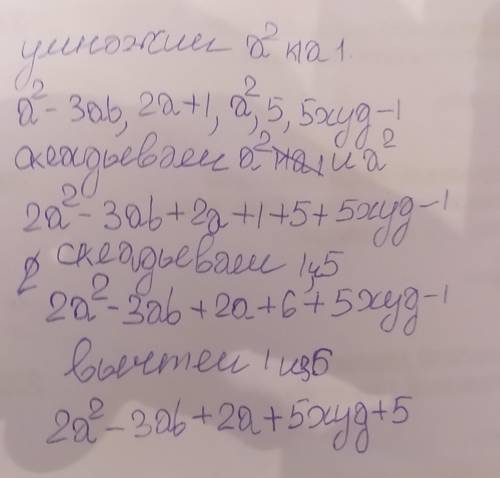 умножим a² на 1.
a² - 3ab, 2a+1, a², 5, 5xyd-1
складываем a² и a²
2a² - 3ab + 2a + 1 + 5 + 5xyd - 1
складываем 1 и 5
2a² - 3ab + 2a + 6 + 5xyd - 1
вычтем 1 из 6
2a² - 3ab + 2a + 5xyd + 5